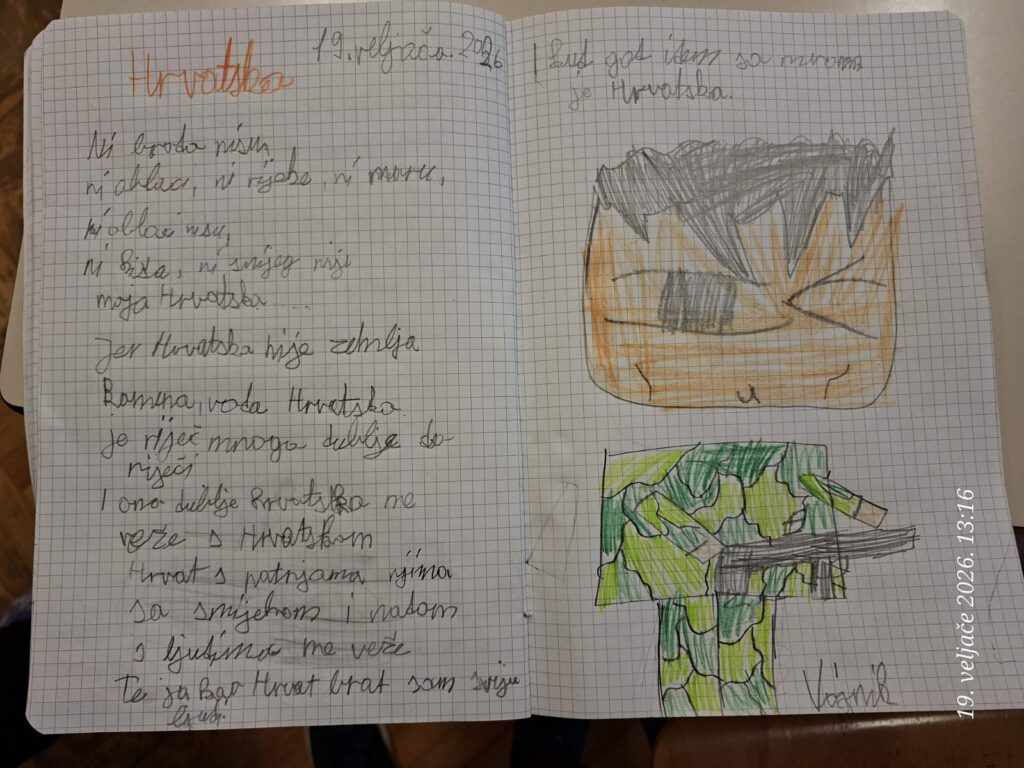 Hrvatska
19. veljača. 2026
Ni broda nisu,
ni oblac, ni rijeke, ni more,
ni oblac nisu,
ni kiša, ni snijeg nije
moja Hrvatska.....
Jer Hrvatska nije zemlja
voda Hrvatska.
je riječ mnoga dublje do-
riječi
I ono dublje Hrvatska me
veže s Hrvatskom
Hrvat s patnjama njima
sa smijehom i nadom
s ljudima me veže
Te ja kao Hrvat brat sam sviju
ljudi.
I kud god idem sa mnom
je Hrvatska.
Vojnik
19. veljače 2026. 13:16